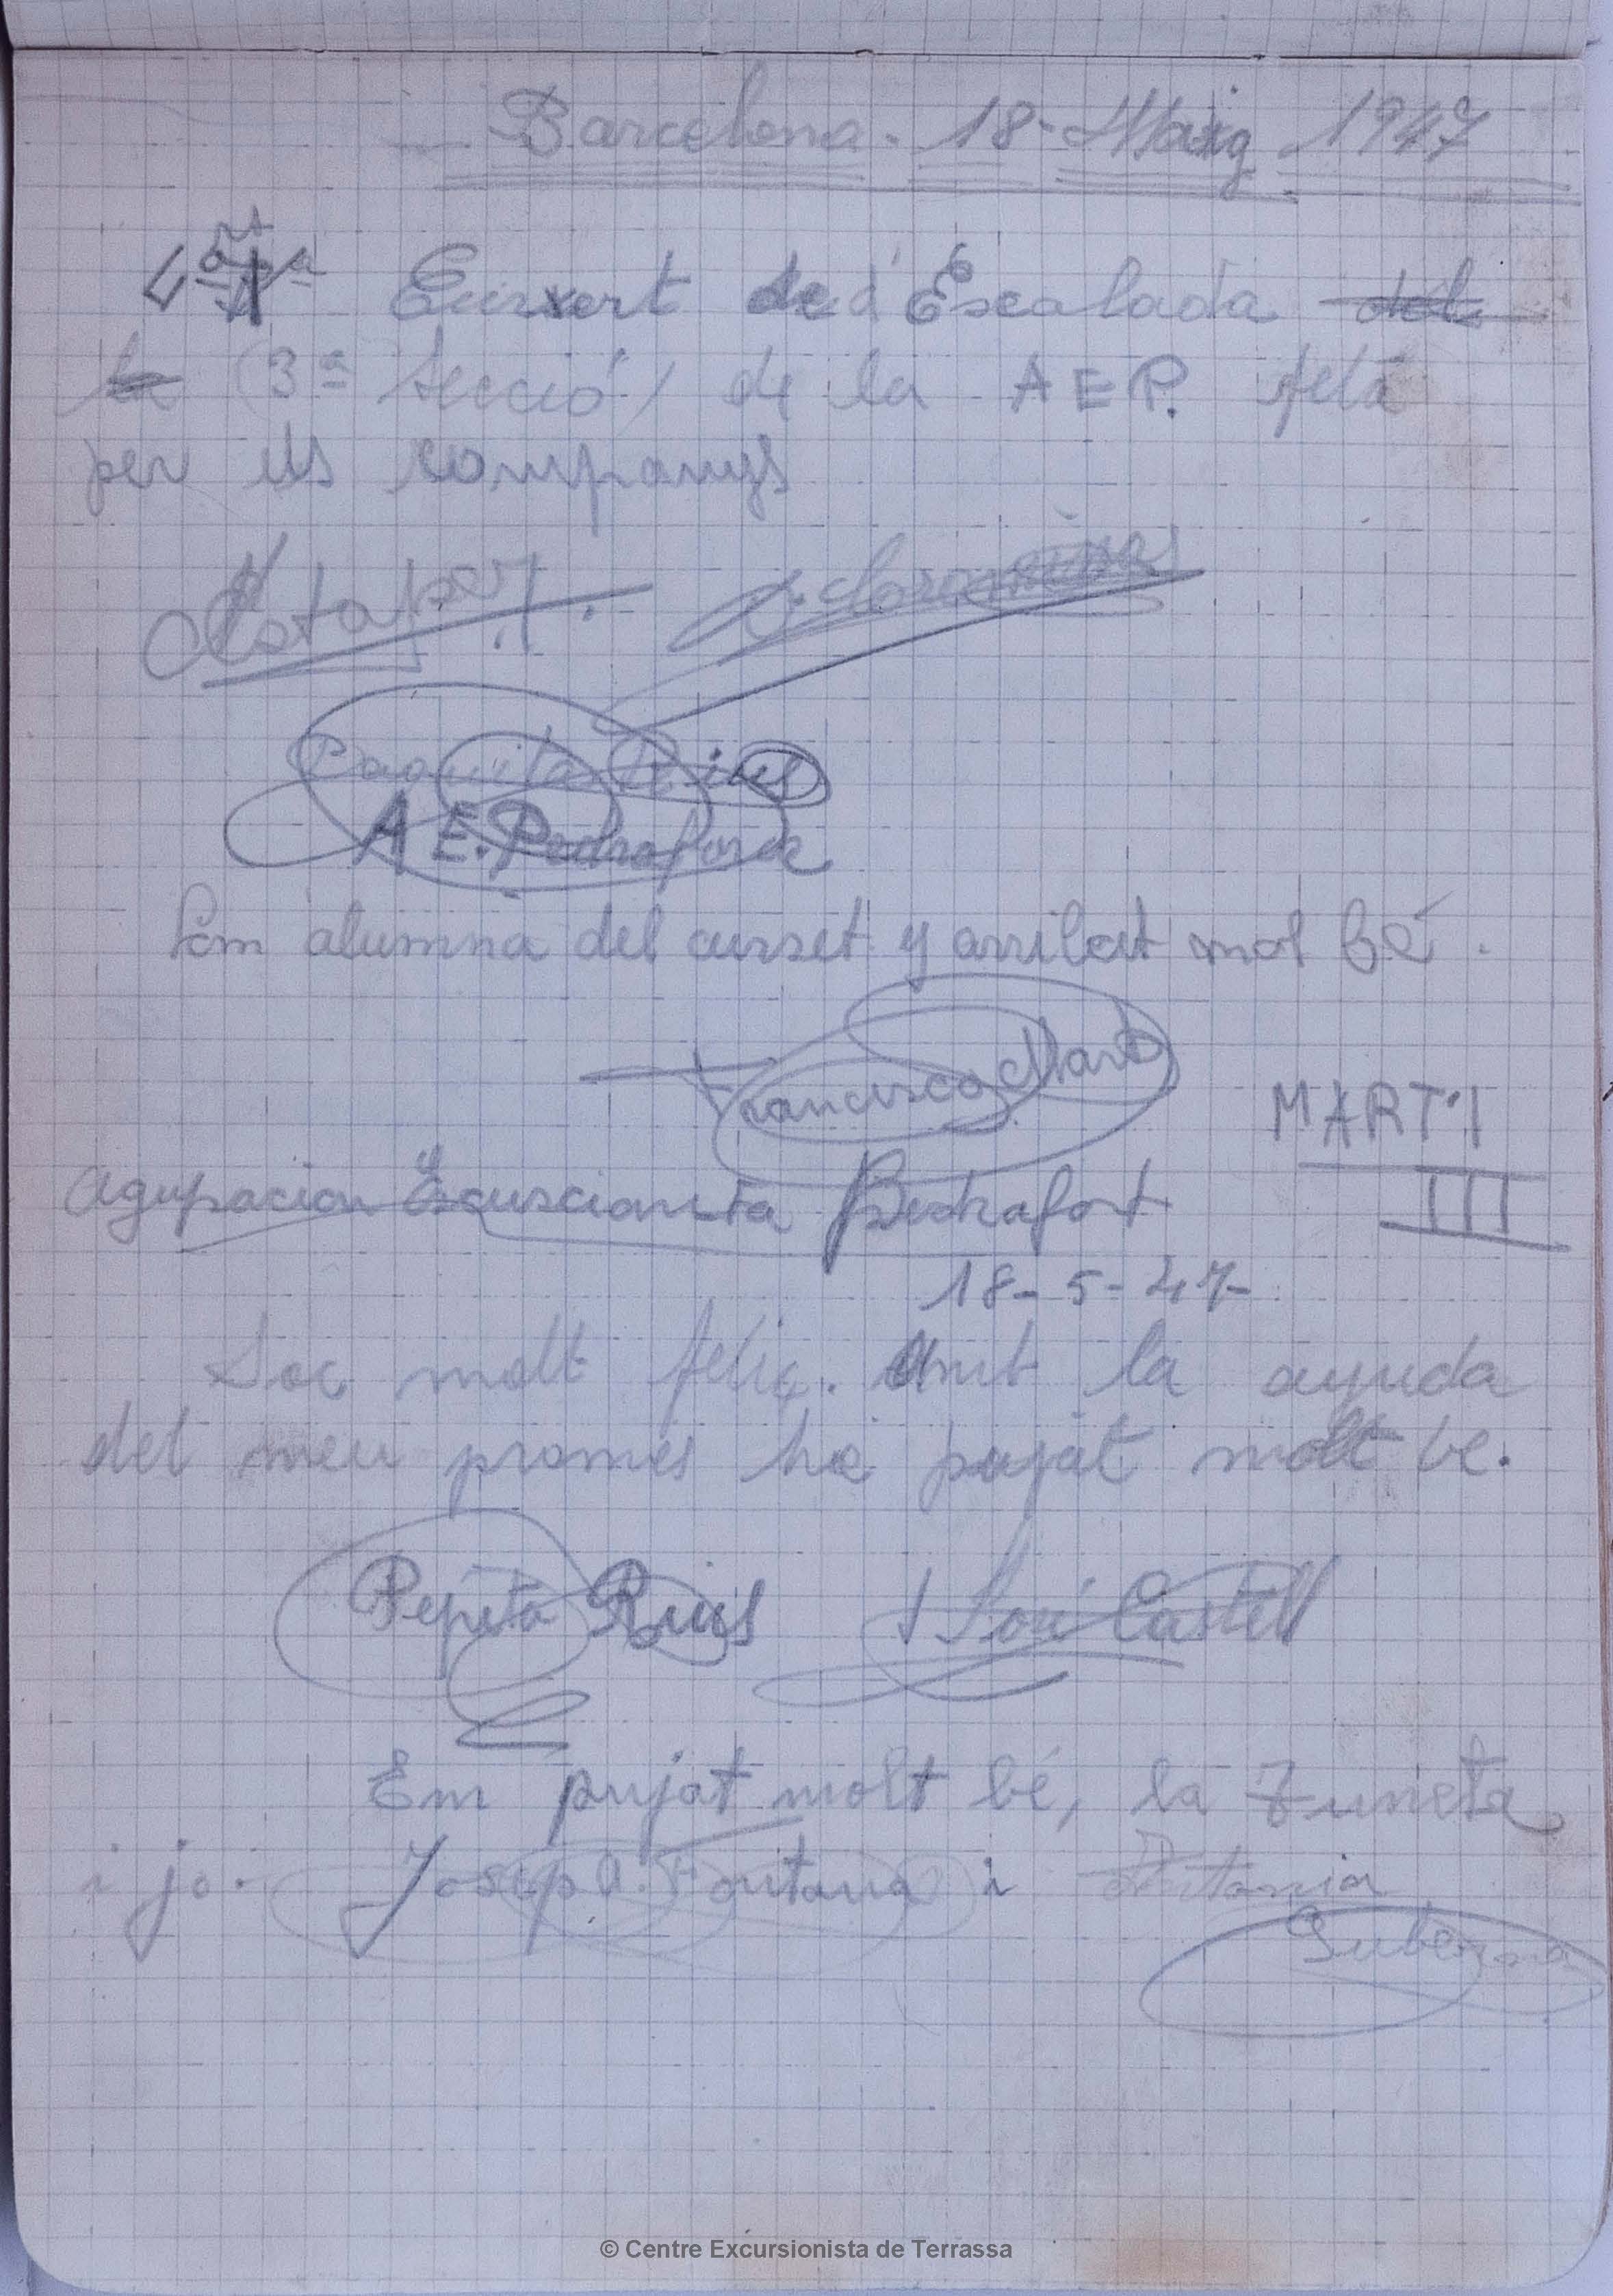 Barcelona. 18- Maig 1947
4ª Curset d'Escalada
(3ª Secció) de la A E P. feta
per els companys
Paquita Rius
A E. Pedraforca
Som alumna del curset y arribat mol bé.
Francisco Marti
MARTI
III
Agupacion Escuscionista Pedrafort
18-5-47-
Soc molt feliç. Amb la ayuda
del meu promes he pujat molt be.
Pepeta Rius José Castell
Em pujat molt bé, la Tuneta
i jo. Josep A. Fontana i Antonia
Suberna
© Centre Excursionista de Terrassa